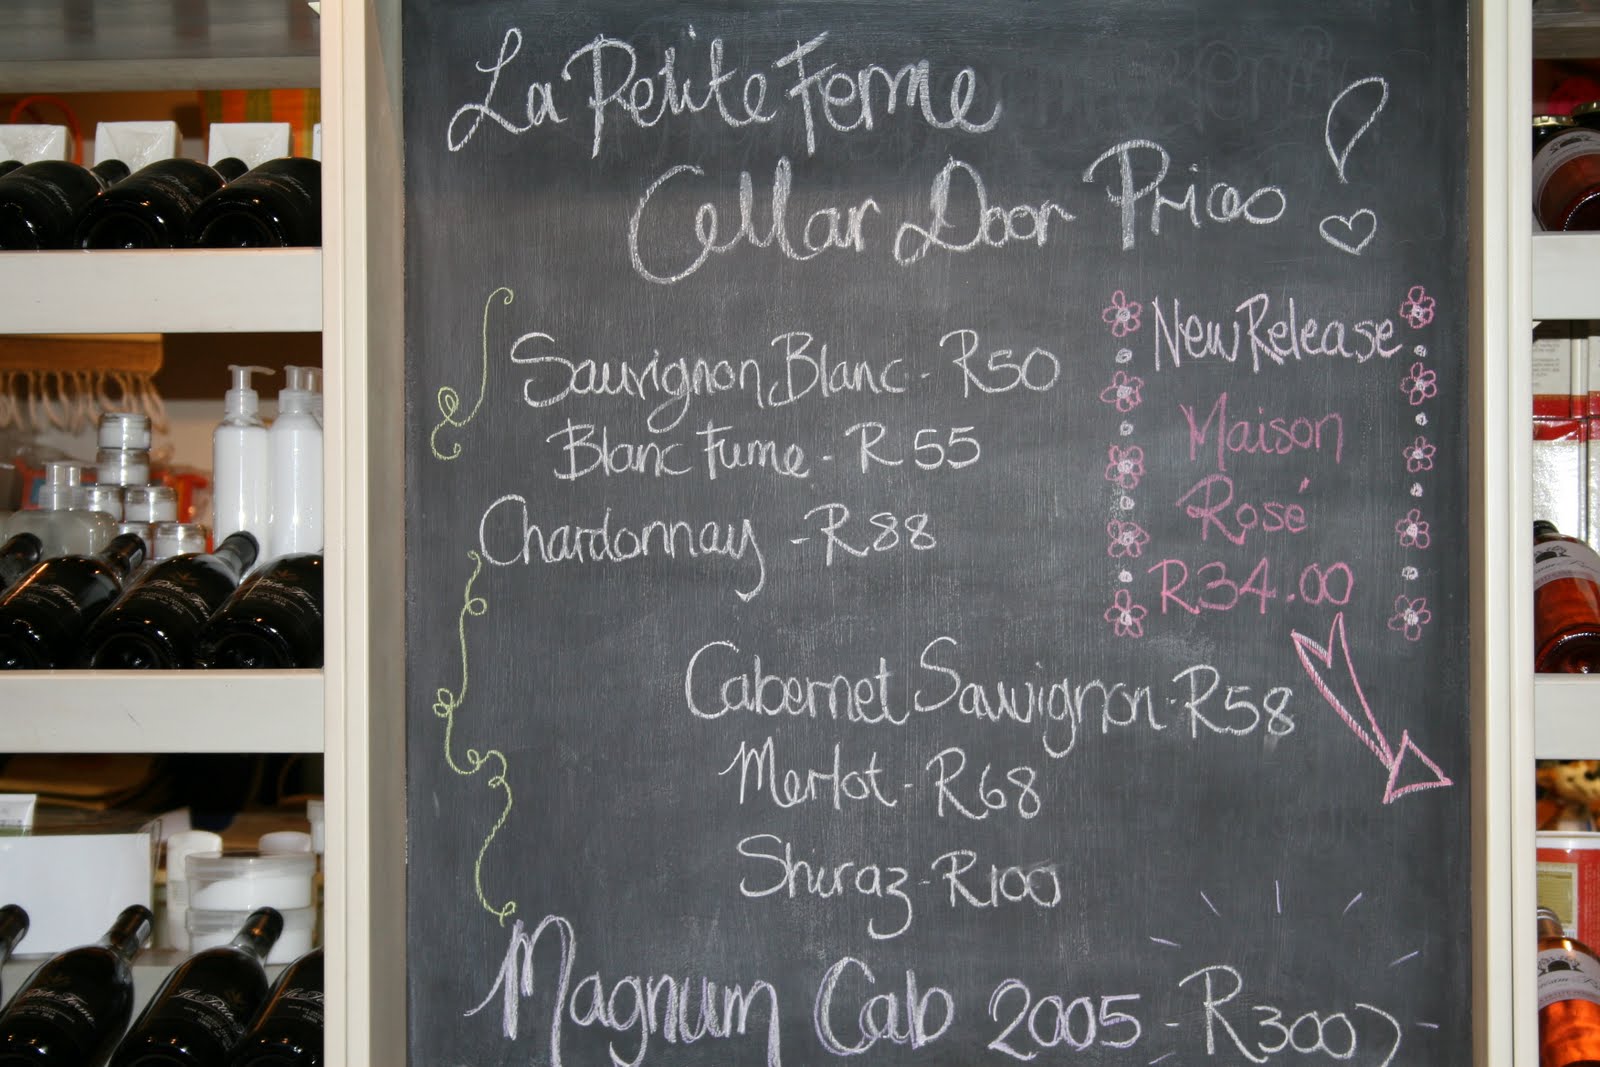 La Petite Ferme
Cellar Door Prices !
Sauvignon Blanc - R50
Blanc Fume - R55
Chardonnay - R88
New Release
Maison
Rosé
R34.00
Cabernet Sauvignon - R58
Merlot - R68
Shiraz - R100
Magnum Cab 2005 - R300